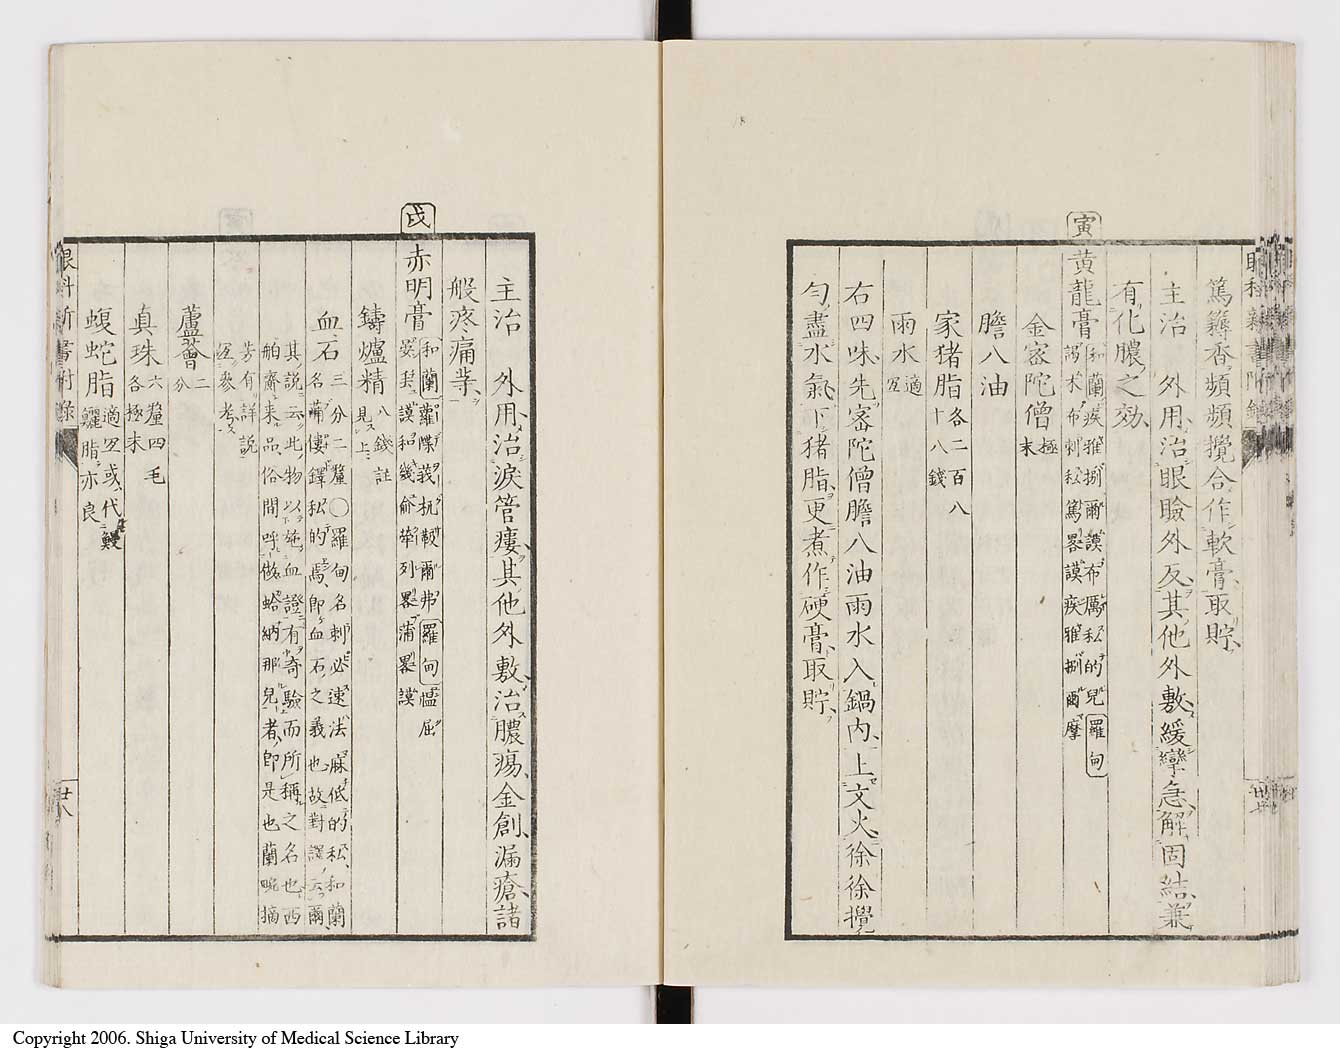 篤耨香頻頻攪合作軟膏取貯
主治　外用治眼瞼外反其他外敷緩攣急解固結兼
有化膿之効
寅
黄龍膏 和蘭疾雅捌爾謨布厲私的兒羅甸
謨布刺私篤畧謨疾雅捌爾摩
金密陀僧 極末
膽八油
家猪脂 各二百八十八錢
雨水 適宜
右四味先密陀僧膽八油雨水入鍋内上文火徐徐攪
勻盡水氣下猪脂更煮作硬膏取貯
主治　外用治淚管瘻其他外敷治膿瘍金創漏瘡諸
般疼痛等
戌
赤明膏 和蘭
羅甸
鑄爐精 八錢註見上
血石 三分二釐〇羅甸名刺必速法麻低的私和蘭
名蒲僂鐸私的焉即血石之義也故對譯云爾
其說云此物以施血證有奇驗而所稱之名也西
舶齎来品俗間呼做蛤納那兒者即是也蘭畹摘
芳有詳說
宜参考
蘆薈 二分
真珠 六釐四毛
各極末
蝮蛇脂 適宜或代鰻
鱺脂亦良
眼科新書附錄
廿八
Copyright 2006. Shiga University of Medical Science Library